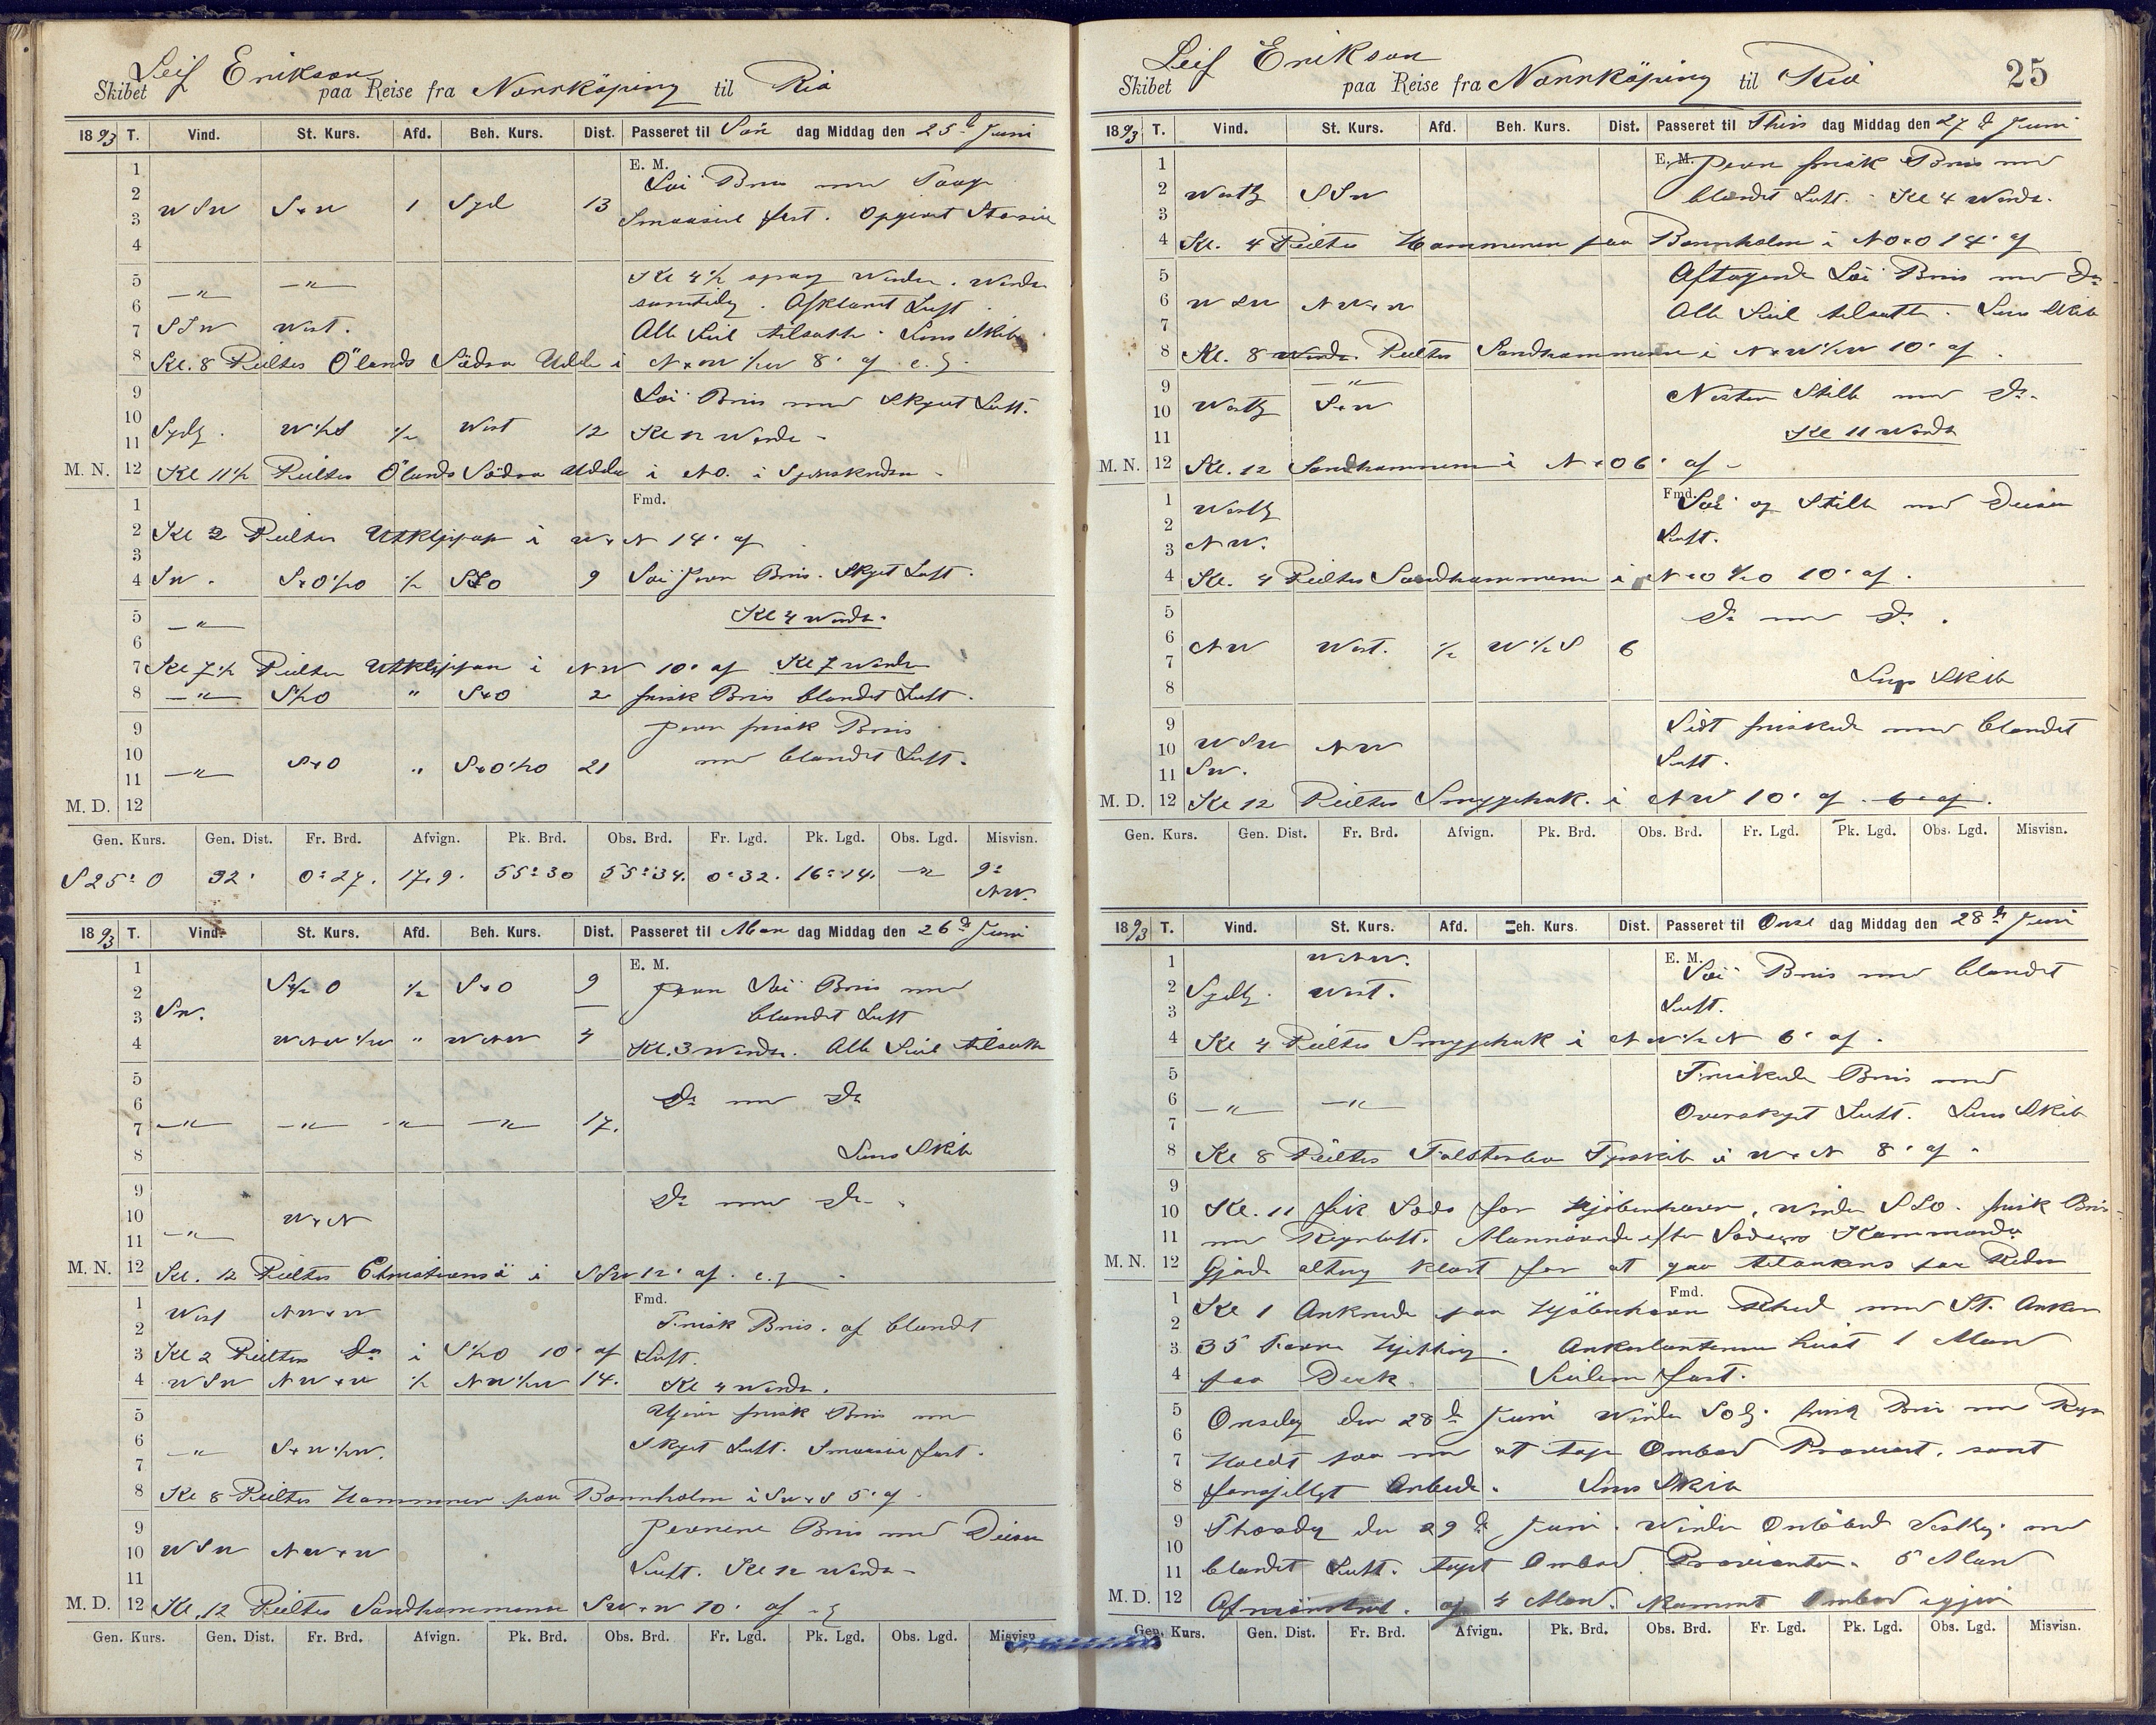 Leif Erikson
Skibet paa Reise fra Norrköping til Rio
1893 T. Vind. St. Kurs. Afd. Beh. Kurs. Dist. Passeret til Søn dag Middag den 25d Juni
1 E. M.
2 Löi Bris med Taage
3 WSW S×W 1 Syd 13 Smaaseil fast. Opgivet Storseil
4
5 —"— —"— Kl 4 1/2 sprag Vinden. Wende
6 samtidig. Afklaret Luft
7 SSW West. Alle Seil tilsatte. Lens Skib
8 Kl. 8 Peiltes Ölands Södra Udde i N×W 1/2 W 8' af
9 Löi Bris med Skyet Luft.
10
11 Sydlg. W 1/2 S 1/2 West 12 Kl 12 Wende
M. N. 12 Kl 11 1/2 Peiltes Ölands Södra Udde i NO. i Synskredsen
1 Fmd.
2 Kl 2 Peiltes Utklippan i W×N 14' af
3
4 SW. S×O 1/2 O 1/2 SSO 9 Löi jevn Bris. Skyet Luft.
5 —"— Kl 4 Wende.
6
7 Kl 7 1/2 Peiltes Utklippan i NW 10' af Kl 7 Wende
8 —"— S 1/2 O " S×O 2 frisk Bris blandet Luft.
9 jevn frisk Bris
10 med blandet Luft.
11 —"— S×O " S×O 1/2 O 21
M. D. 12
Gen. Kurs. Gen. Dist. Fr. Brd. Afvign. Pk. Brd. Obs. Brd. Fr. Lgd. Pk. Lgd. Obs. Lgd. Misvisn.
S 25° O 32' 0° 27. 17,9. 55° 30 55° 34. 0° 32. 16° 14. —"— 9° NW.
1893 T. Vind. St. Kurs. Afd. Beh. Kurs. Dist. Passeret til Man dag Middag den 26d Juni
1 E. M.
2 S 1/2 O 1/2 S×O 9 jevn Löi Bris med
3 SW. blandet Luft
4 WNW 1/2 W " WNW 4 Kl. 3 Wende. Alle Seil tilsatte
5
6 Do med Do
7 —"— —"— —"— —"— 17.
8 Lens Skib
9 Do med Do.
10 W×N
11 —"—
M. N. 12 Kl. 12 Peiltes Christiansö i SSW 12' af.
1 Fmd.
2 West NW×W Frisk Bris. af blandt
3 Kl 2 Peiltes Do i S 1/2 O 10' af Luft.
4 WSW NW×W 1/2 NW 1/2 W 14. Kl 4 Wende.
5 Ujevn frisk Bris med
6 —"— S×W 1/2 W. Skyet Luft. Smaaseil fast.
7
8 Kl 8 Peiltes Hammeren paa Bornholm i SW×S 5' af
9 Jevnere Bris med Diesen
10 WSW NW×W
11 Luft. Kl 12 Wende
M. D. 12 Kl. 12 Peiltes Sandhammeren SW×W 10' af
Gen. Kurs. Gen. Dist. Fr. Brd. Afvign. Pk. Brd. Obs. Brd. Fr. Lgd. Pk. Lgd. Obs. Lgd. Misvisn.
25
Leif Erikson
Skibet paa Reise fra Norrköping til Rio
1893 T. Vind. St. Kurs. Afd. Beh. Kurs. Dist. Passeret til Thirs dag Middag den 27d Juni
1 E. M. Jevn frisk Bris med
2 Westlg SSW blandet Luft. Kl 4 Wende.
3
4 Kl. 4 Peiltes Hammeren paa Bornholm i NO×O 14' af
5 Aftagende Löi Bris med Do
6 WSW NW×W Alle Seil tilsatte. Lens Skib
7
8 Kl. 8 Wende. Peiltes Sandhammeren i N×W 1/2 W 10' af.
9 —"— Nesten Stille med Do.
10 Westlg S×W
11 Kl 11 Wende
M. N. 12 Kl. 12 Sandhammeren i N×O 6' af
1 Fmd. Löi og Stille med Diesen
2 Westlg
3 NW. Luft.
4 Kl. 4 Peiltes Sandhammeren i N×O 1/2 O 10' af.
5 Do med Do.
6 NW West. 1/2 W 1/2 S 6
7 Lens Skib
8
9 Lidt friskede med blandet
10 WSW NW Luft.
11 SW.
M. D. 12 Kl 12 Peiltes Smygehuk. i NW 10' af. 6' af.
Gen. Kurs. Gen. Dist. Fr. Brd. Afvign. Pk. Brd. Obs. Brd. Fr. Lgd. Pk. Lgd. Obs. Lgd. Misvisn.
1893 T. Vind. St. Kurs. Afd. Beh. Kurs. Dist. Passeret til Ons dag Middag den 28d Juni
1 WNW. E. M. Löi Bris med blandet
2 Sydlg. West.
3 Luft.
4 Kl 4 Peiltes Smygehuk i NW 1/2 N 6' af.
5 Friskende Bris med
6 —"— —"— Overskyet Luft. Lens Skib
7
8 Kl 8 Peiltes Falsterbo Fyrskib i W×N 8' af.
9
10 Kl. 11 fik Lods for Kjöbenhavn, Vinden SSO. frisk Bris
11 med Regnluft. Manövrede efter Lodsens Kommando
M. N. 12 Gjorde alting klart for at gaa tilankers paa Reden
1 Fmd. Kl 1 Ankrede paa Kjöbenhavn Rhed med St. Anker
2
3 35 Favne Kjetting. Ankerlanternen heist 1 Mand
4 paa Dæk. Seilene fast.
5 Onsdag den 28d Juni Vinden SO. frisk Bris med Regn
6
7 Holdt paa med at tage Ombord Proviant. samt
8 forsjelligt Arbeide. Lens Skib
9 Thorsdag den 29d Juni. Vinden Omlöbende Vestlig. med
10
11 blandet Luft. taget Ombord Provianten. 5 Mand
M. D. 12 Afmönstret. og 4 Mand. kommet Ombord igjen
Gen. Kurs. Gen. Dist. Fr. Brd. Afvign. Pk. Brd. Obs. Brd. Fr. Lgd. Pk. Lgd. Obs. Lgd. Misvisn.